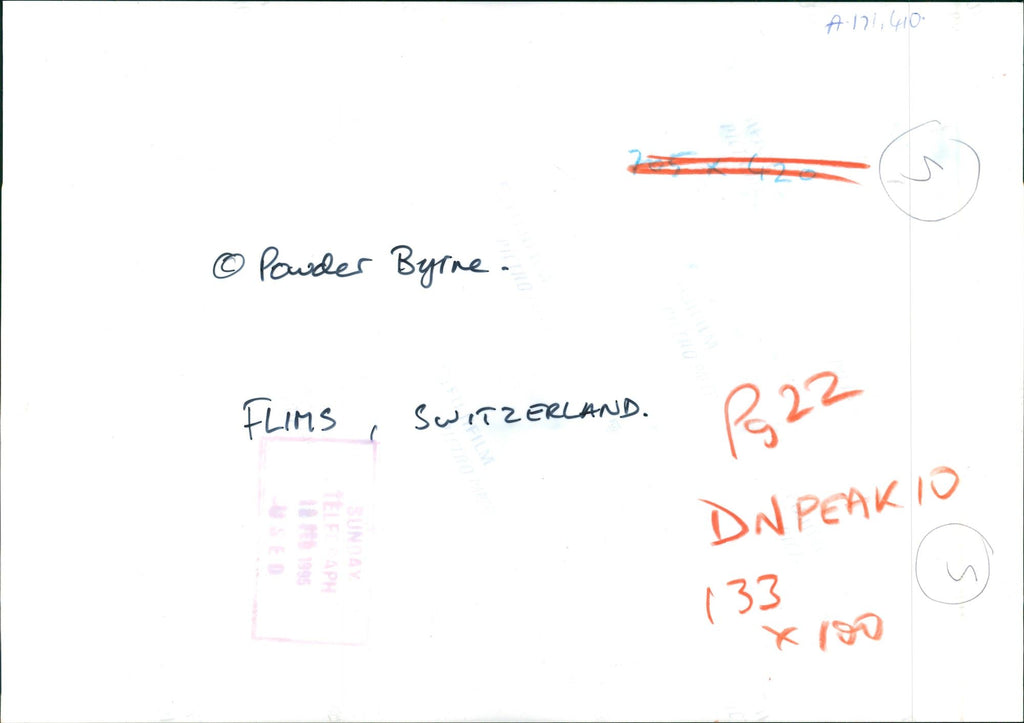 A.171,410.
205 x 420
S
© Powder Byrne.
FLIMS, SWITZERLAND.
Pg 22
DNPEAK10
133
x 100
S
SUNDAY
TELEGRAPH
FEB 1995
USED